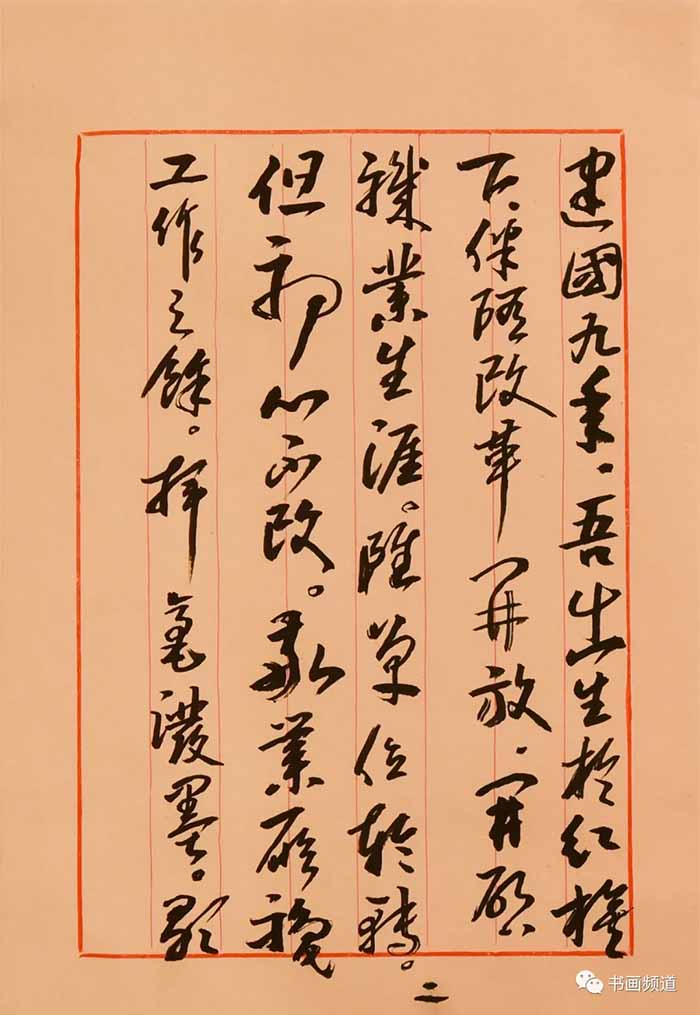 建國九年，吾出生於紅旗
下，伴隨改革開放，開啟
職業生涯。雖單位輪轉。
但初心不改。敬業穩
工作之餘。揮毫潑墨。
二
书画频道